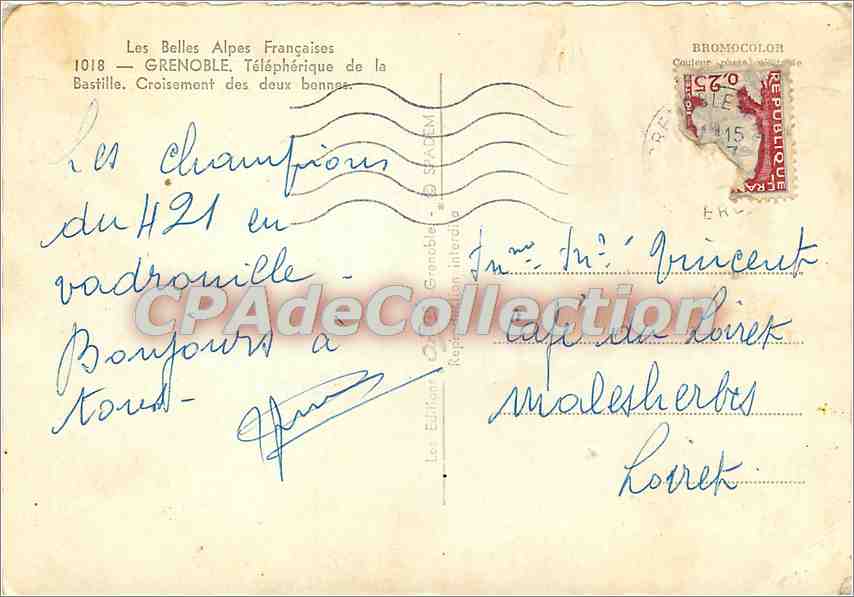 Les Belles Alpes Françaises
1018 — GRENOBLE. Téléphérique de la
Bastille. Croisement des deux bennes.
BROMOCOLOR
0,25
REPUBLIQUE
FRANÇ
15
Les champions
du 421 en
vadrouille -
Bonjours à
tous -
Mme Mr Vincent
Café du Loiret
Malesherbes
Loiret
Les Editions Grenoble - © SPADEM
Reproduction interdite
CPAdeCollection